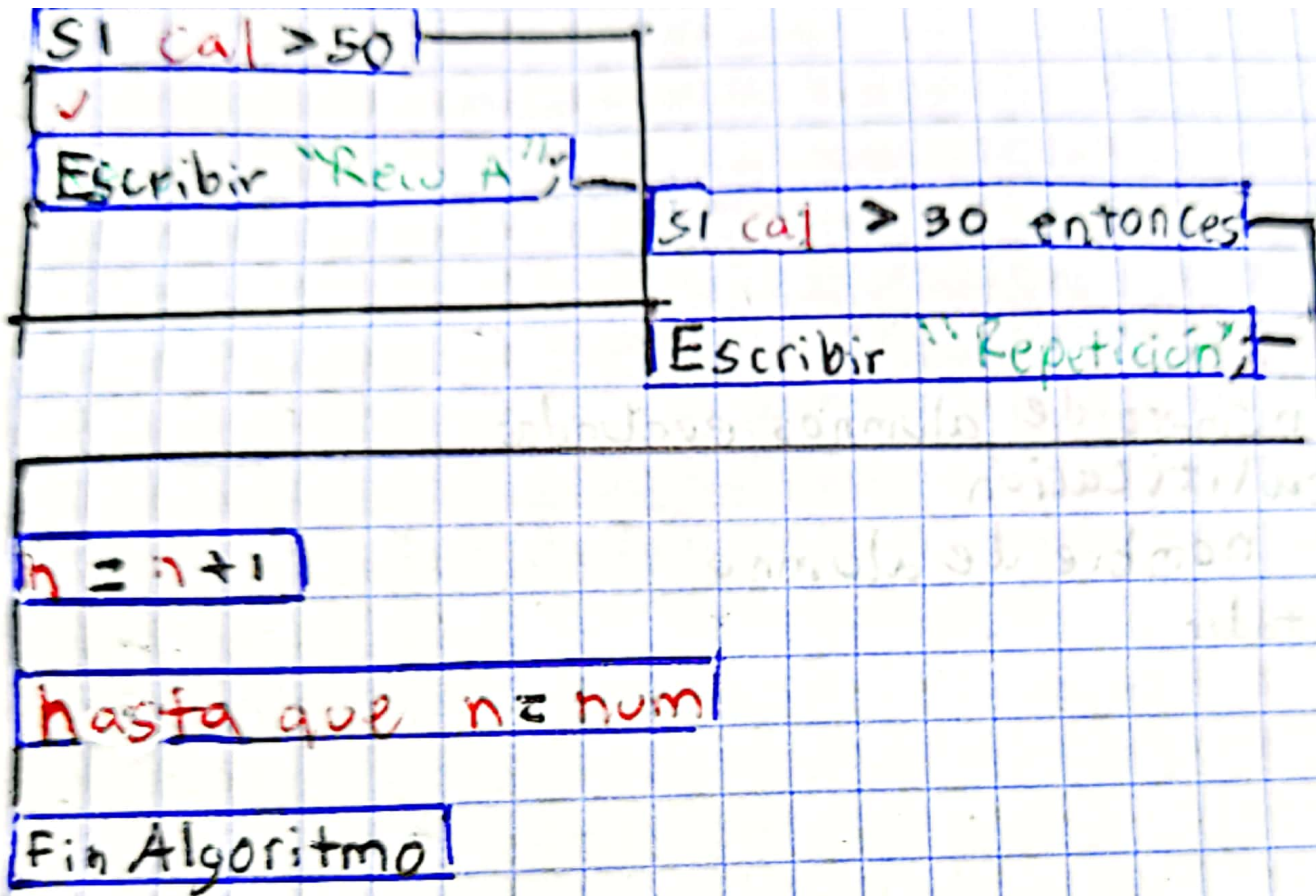 SI cal > 50
Escribir " A";
SI cal > 30 entonces
Escribir "Repetición";
n = n + 1
hasta que n = num
Fin Algoritmo